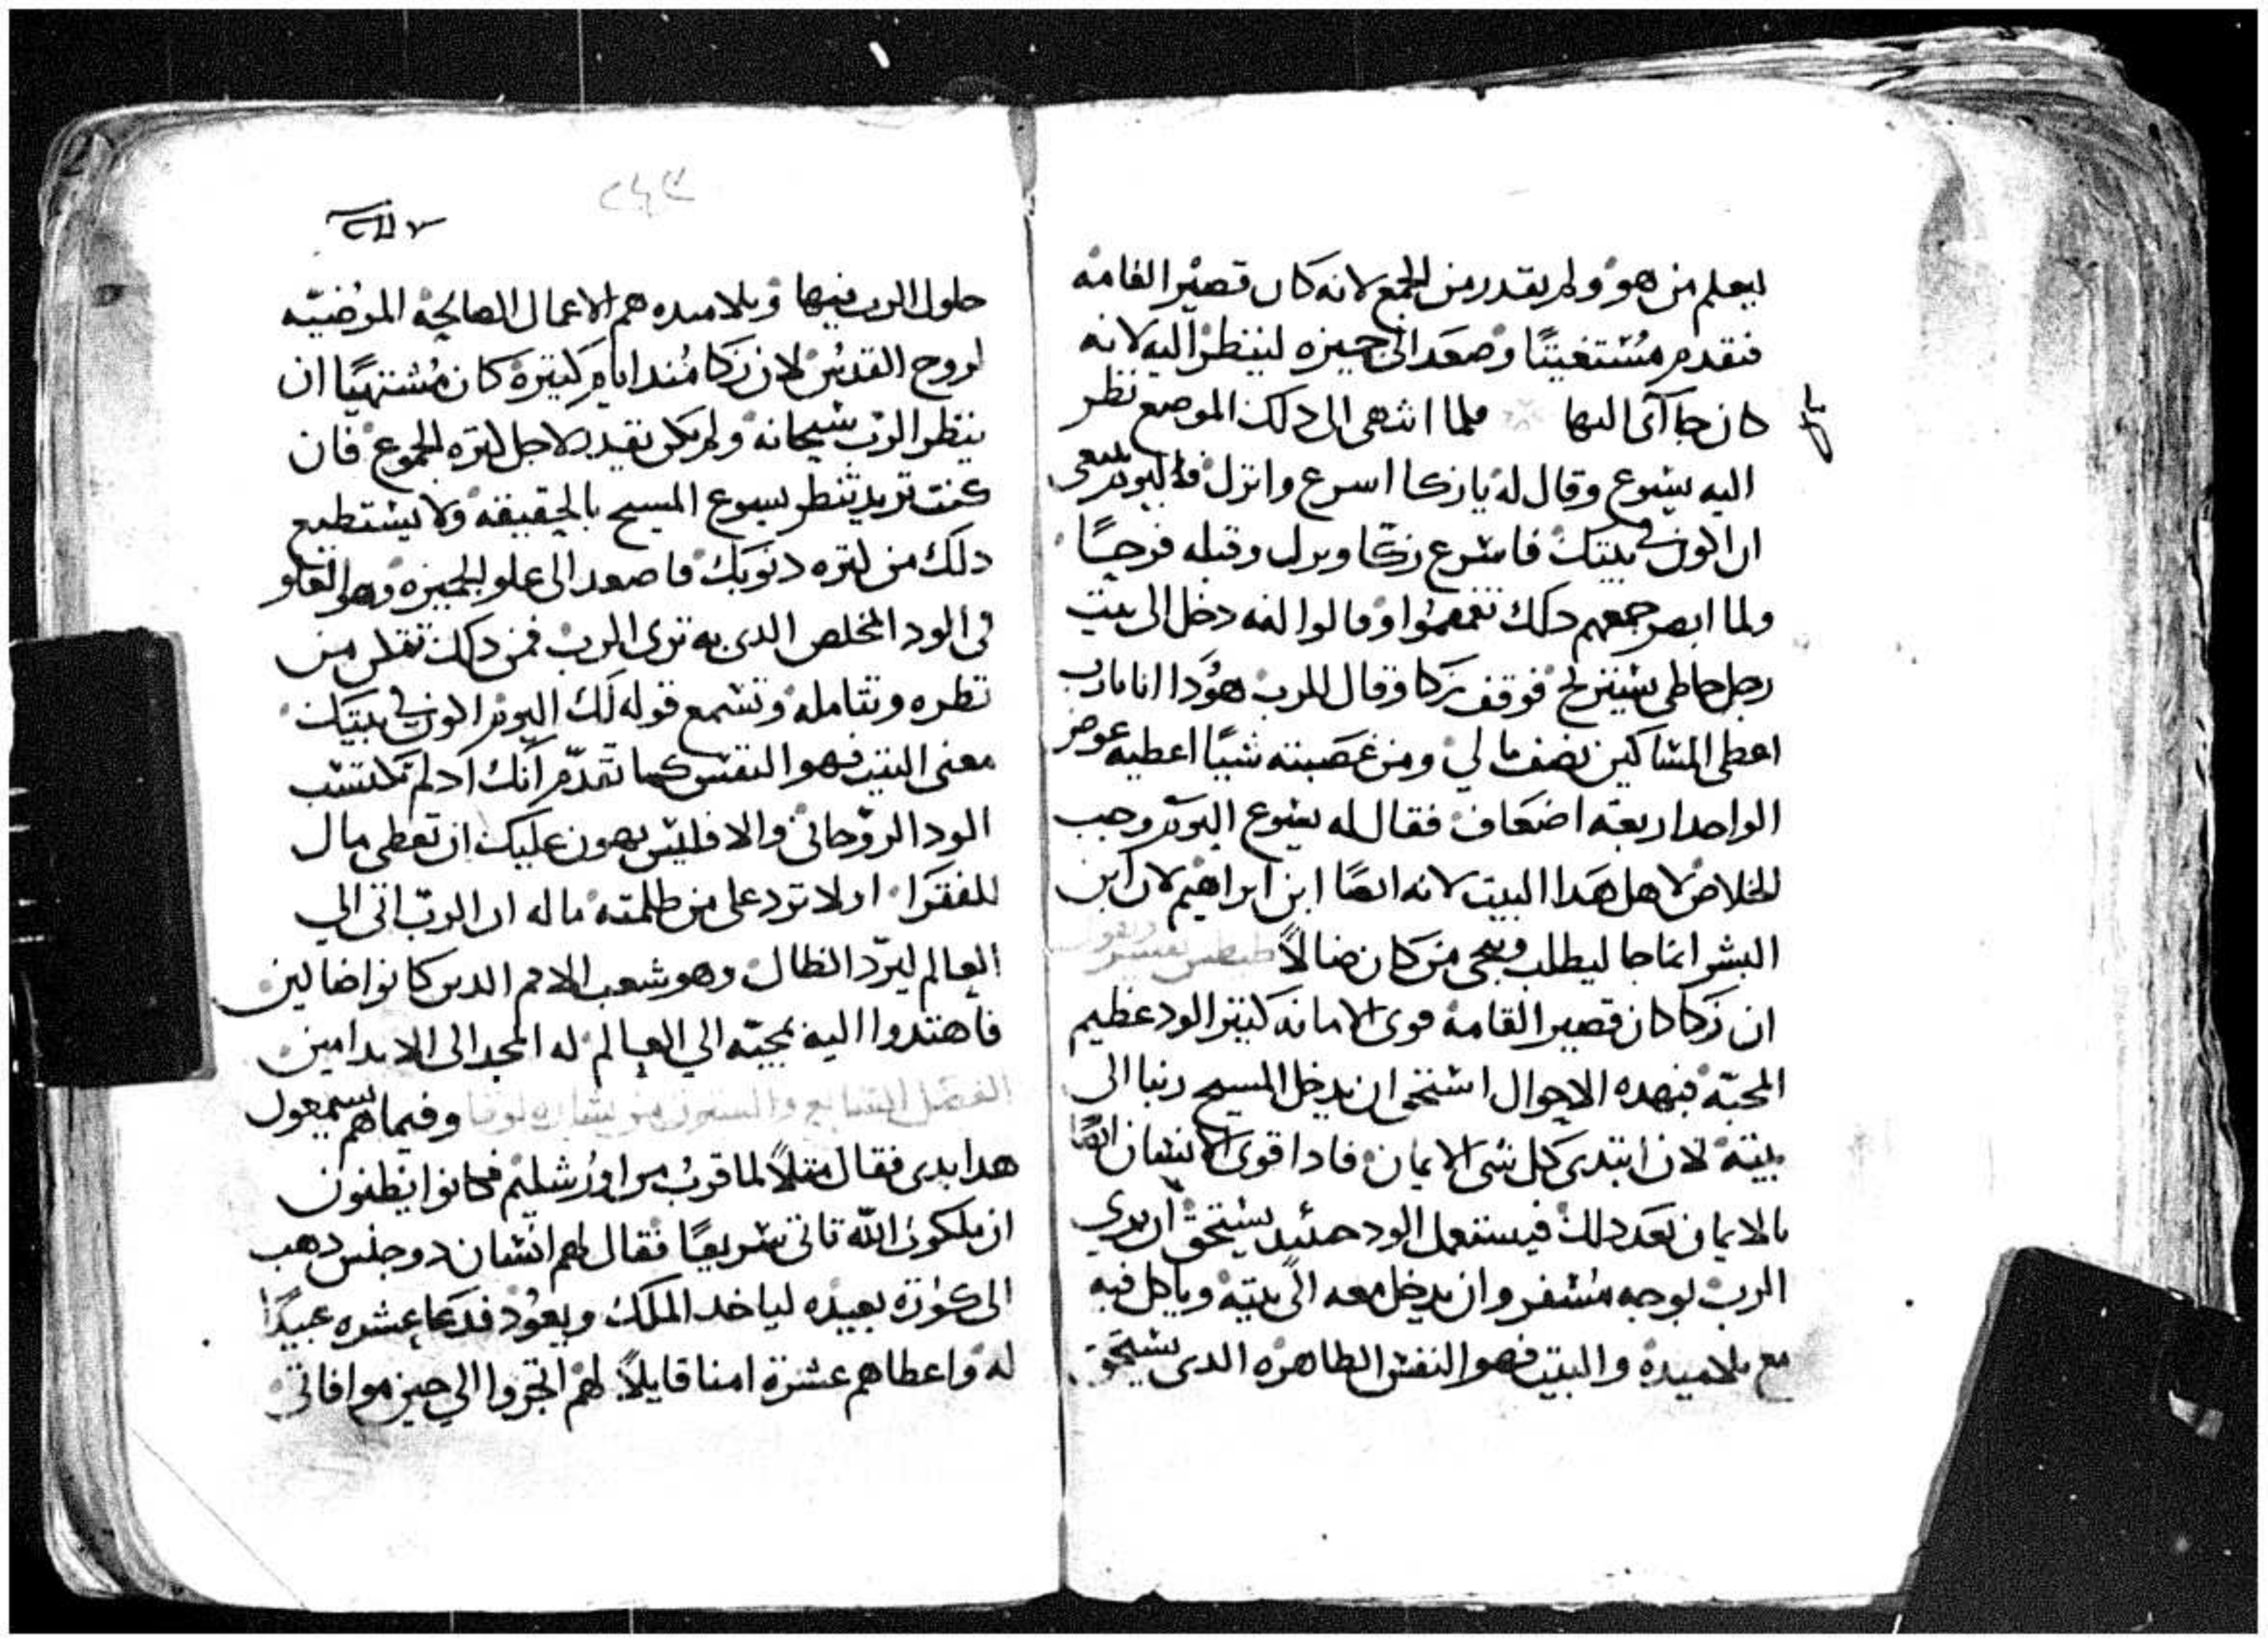 ليعلم من هو ولم يقدر من الجمع لانه كان قصير القامه
فتقدم مستغيتًا وصعد الى جميزه لينظر اليه لانه
كان جاآى اليها فلما انتهى الى دلك الموضع نظر
اليه يسوع وقال له يا زكا اسرع وانزل فاليوم ينبغى
ان اكون في بيتك فاسرع زكا ونزل وقبله فرحًا
ولما ابصر جمعهم دلك تقمقموا وقالوا انه دخل الى بيت
رجل خاطى يستريح فوقف زكا وقال للرب هودا انا يارب
اعطى المساكين نصف ما لي ومن غصبته شيًا اعطيه عوض
الواحد اربعة اضعاف فقال له يسوع اليوم وجب
الخلاص لاهل هدا البيت لانه ايضًا ابن ابراهيم لان ابن
البشر انما جا ليطلب وينجى من كان ضالاً
ان زكا كان قصير القامة قوى الامانه كتير الود عظيم
المحبة فبهده الاحوال استحق ان يدخل المسيح ربنا الى
بيته لان ابتدى كل شى الايمان فادا قوى الانسان ايضًا
بالايمان بعد دلك فيستعمل الود حينيد يستحق ان يري
الرب بوجه مسفر وان يدخل معه الى بيته وياكل فيه
مع تلاميده والبيت فهو النفس الطاهره الدى يستحق
٢٤٣
حلول الرب فيها وتلاميده هم الاعمال الصالحة المرضيه
لروح القدس لان زكا مند ايام كتيرة كان مشتهيًا ان
ينظر الرب سبحانه ولم يكن يقدر لاجل كتره الجموع فان
كنت تريد تنظر يسوع المسيح بالحقيقه ولا يستطيع
دلك من كتره دنوبك فاصعد الى علو الجميزه وهى العلو
فى الود المخلص الدى به ترى الرب فمن دلك تتمكن من
نظره وتتامله وتسمع قوله لك اليوم اكون في بيتك
معنى البيت فهو النفس كما تقدم انك اد لم تكتسب
الود الروحانى والا فليس يهون عليك ان تعطى مال
للفقرا او لا ترد على من ظلمته ماله ان الرب اتى الي
العالم ليرد الظال وهو شعب الامم الدين كانوا ضالين
فاهتدوا اليه بمجيه الي العالم له المجد الى الابد امين
الفصل السابع والستون من بشاره لوقا وفيما هم يسمعون
هدا بدى فقال متلاً لما قرب من اورشليم فكانوا يظنون
ان ملكوت الله تاتى سريعًا فقال لهم انسان دو جنس دهب
الى كورة بعيده لياخد الملك ويعود فدعا عشره عبيدًا
له واعطاهم عشرة امنا قايلاً لهم اتجروا الي حين موافاتي